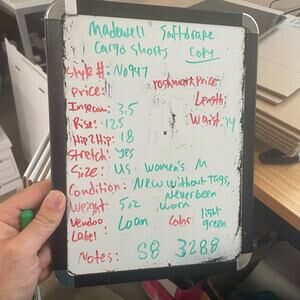 Madewell Softdrape
Cargo Shorts Copy
Style #: NO947
Price: Poshmark Price:
Inseam: 3.5 Length:
Rise: 12.5 Waist: 14
Hip 2 Hip: 18
Stretch: Yes
Size: US Women's M
Condition: New Without Tags,
Never been
Weight: 5oz worn
Vendoo Loan Color: light
Label: green
Notes: S8 3288